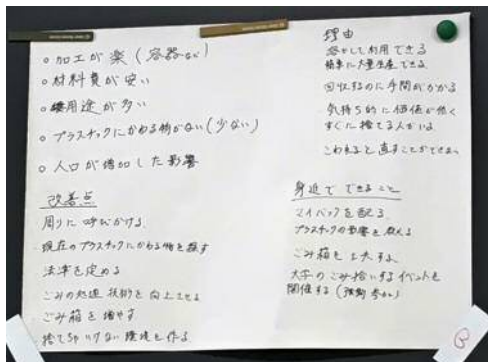 ○ 加工が楽（容器など）
○ 材料費が安い
○ 用途が多い
○ プラスチックにかわる物がない（少ない）
○ 人口が増加した影響
改善点
周りに呼びかける
・現在のプラスチックにかわる物を探す
法律を定める
ごみの処理技術を向上させる
ごみ箱を増やす
捨てちゃいけない環境を作る
理由
溶かして利用できる
簡単に大量生産できる
回収するのに手間がかかる
気持ち的に価値が低く
すぐに捨てる人がいる
こわれると直すことができない
身近でできること
マイバックを配る
プラスチックの影響を教える
ごみ箱を工夫する
大学のごみ拾いにするイベントを
開催する（強制参加）